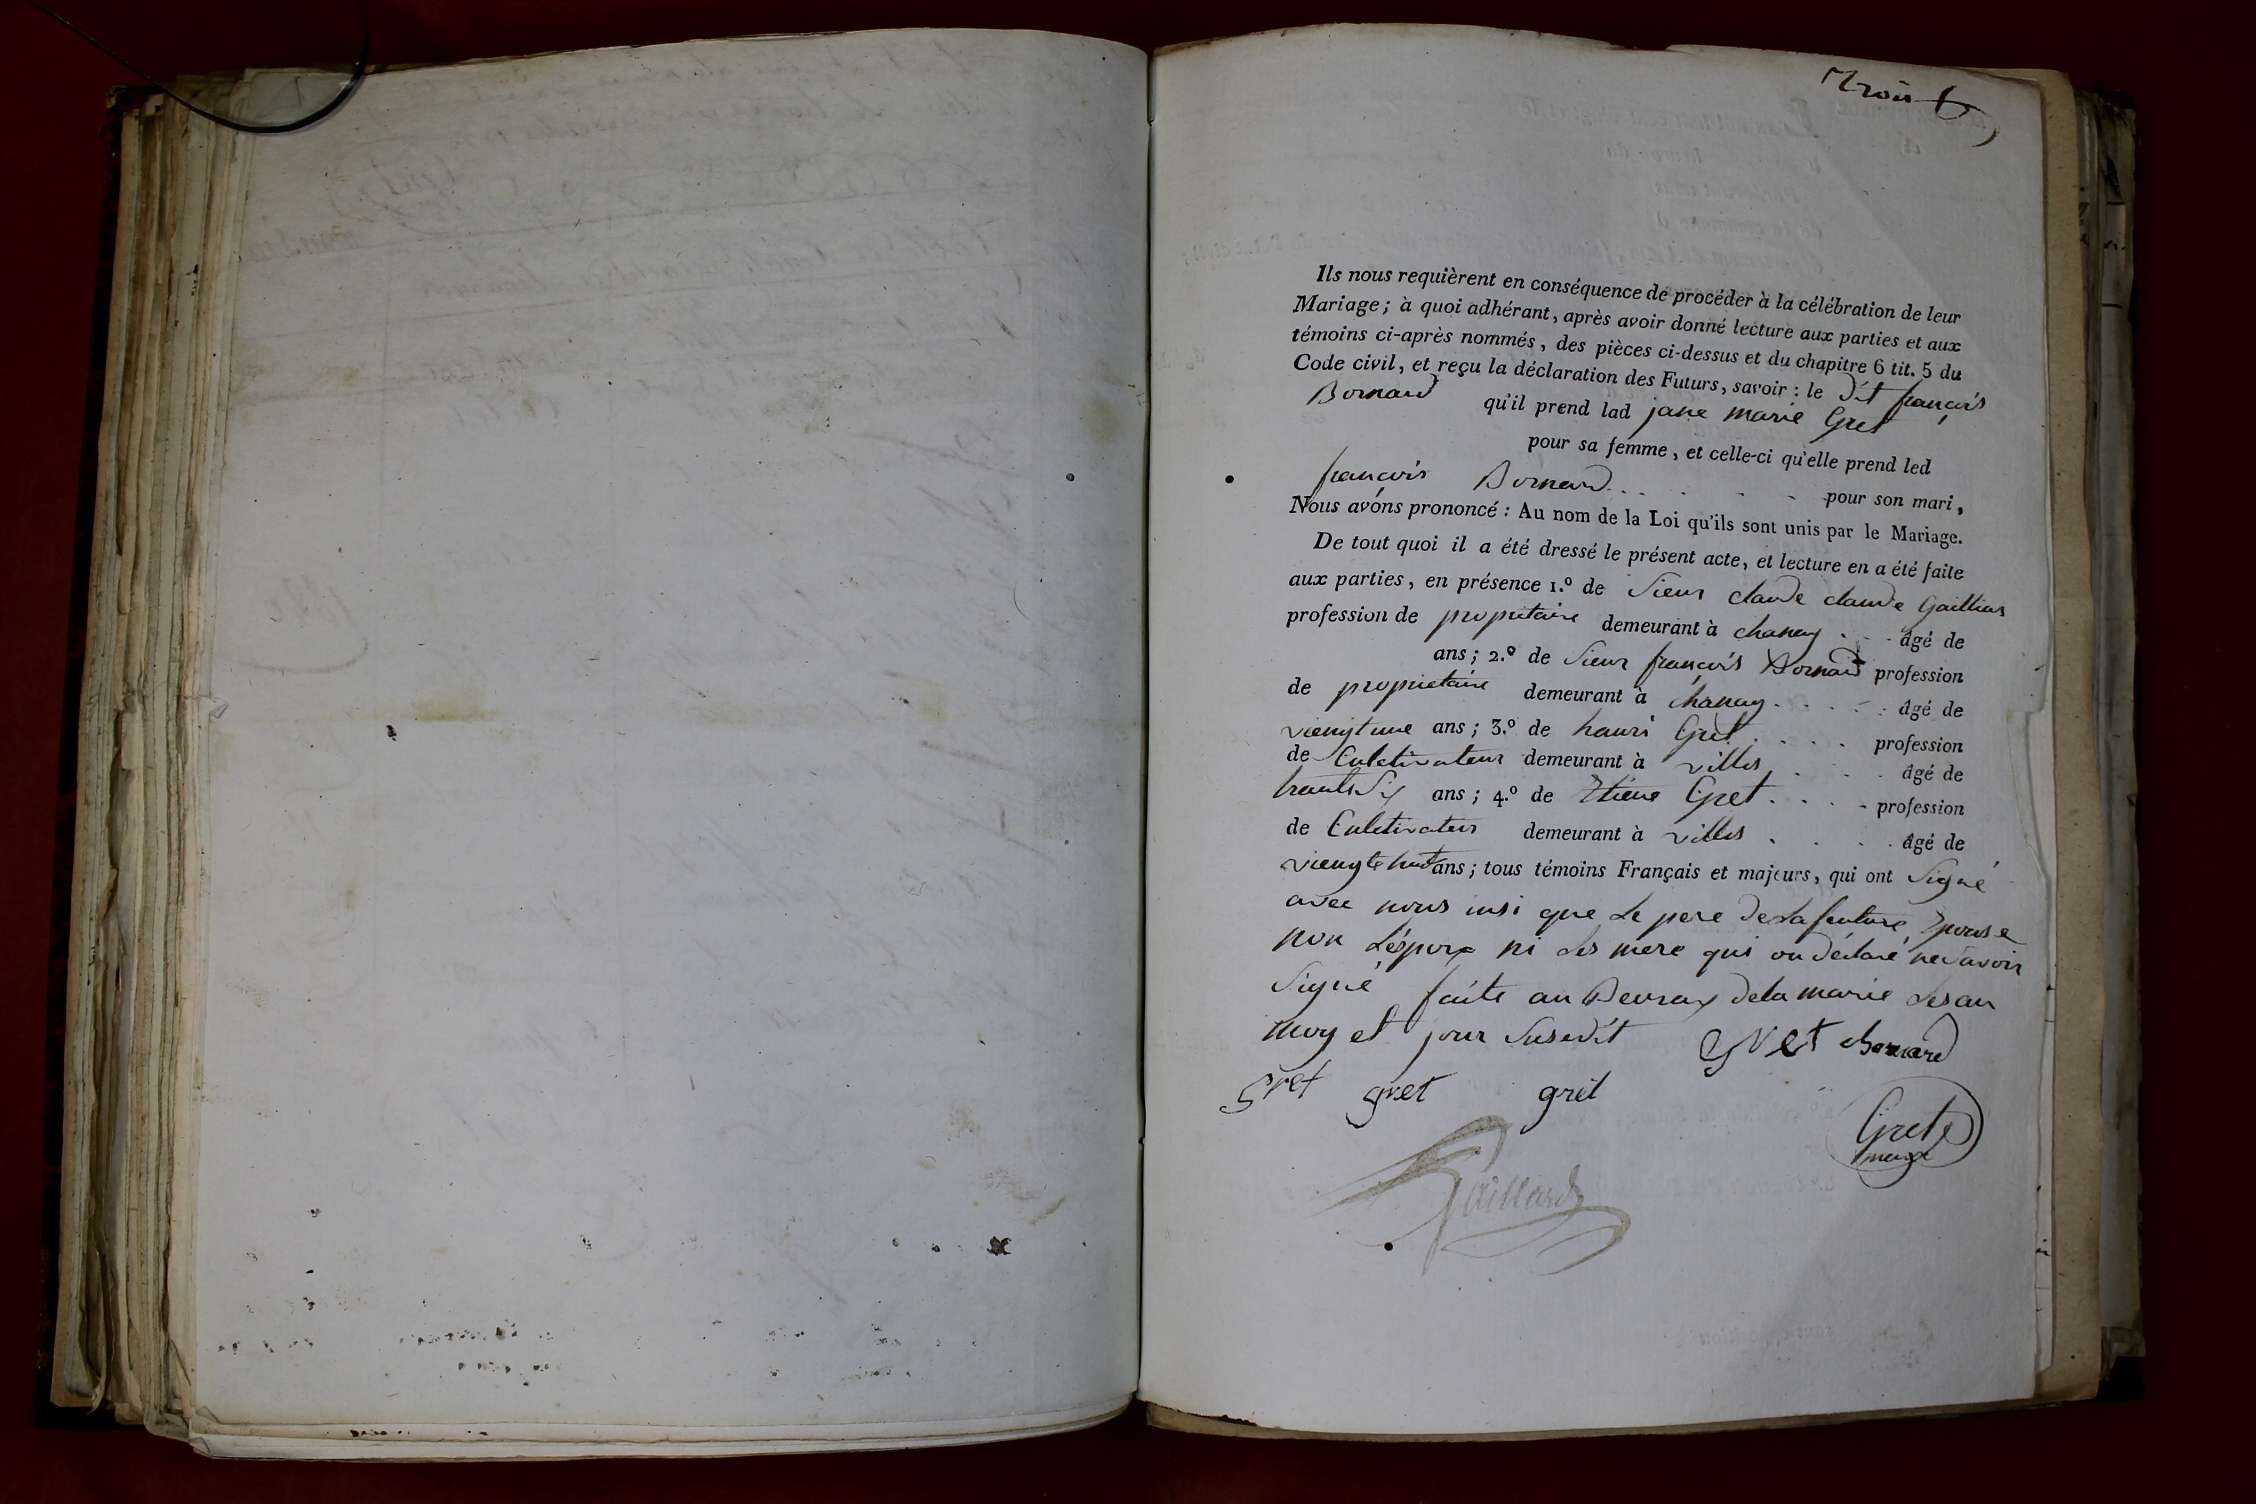 Trois
Ils nous requièrent en conséquence de procéder à la célébration de leur
Mariage; à quoi adhérant, après avoir donné lecture aux parties et aux
témoins ci-après nommés, des pièces ci-dessus et du chapitre 6 tit. 5 du
Code civil, et reçu la déclaration des Futurs, savoir : le dit françois
Bornard qu'il prend lad jane marie Gret
pour sa femme, et celle-ci qu'elle prend led
françois Bornard . . . . . pour son mari,
Nous avons prononcé : Au nom de la Loi qu'ils sont unis par le Mariage.
De tout quoi il a été dressé le présent acte, et lecture en a été faite
aux parties, en présence 1.º de Sieur claude claude
profession de propritaire demeurant à chanay . . . âgé de
ans; 2.º de Sieur françois Bornard profession
de proprietaire demeurant à chanay . . . . . âgé de
viengtune ans; 3.º de hanri Gret . . . . profession
de Culetivateur demeurant à villes . . . âgé de
trantsix ans; 4.º de Etiene Gret . . . . profession
de Culetivateur demeurant à villes . . . . âgé de
viengtehuit ans; tous témoins Français et majeurs, qui ont Signé
avec nous insi que le pere de la feuture Epouse
non l'époux ni les mere qui on déclaré ne savoir
Signé faite au Beuraux de la marie les an
moy et jour Susedit Gret Bornard
gret gret gret
Grete
maire
Gaillard